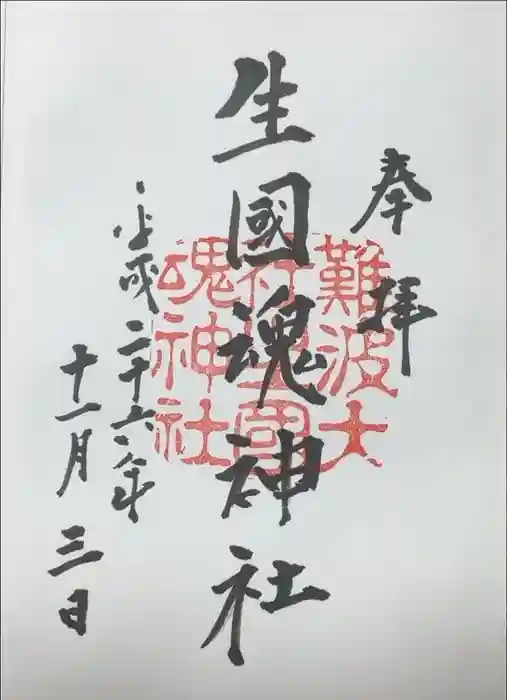 奉拝
難波大
行宮生國
魂神社
生國魂神社
平成二十六年
十一月三日